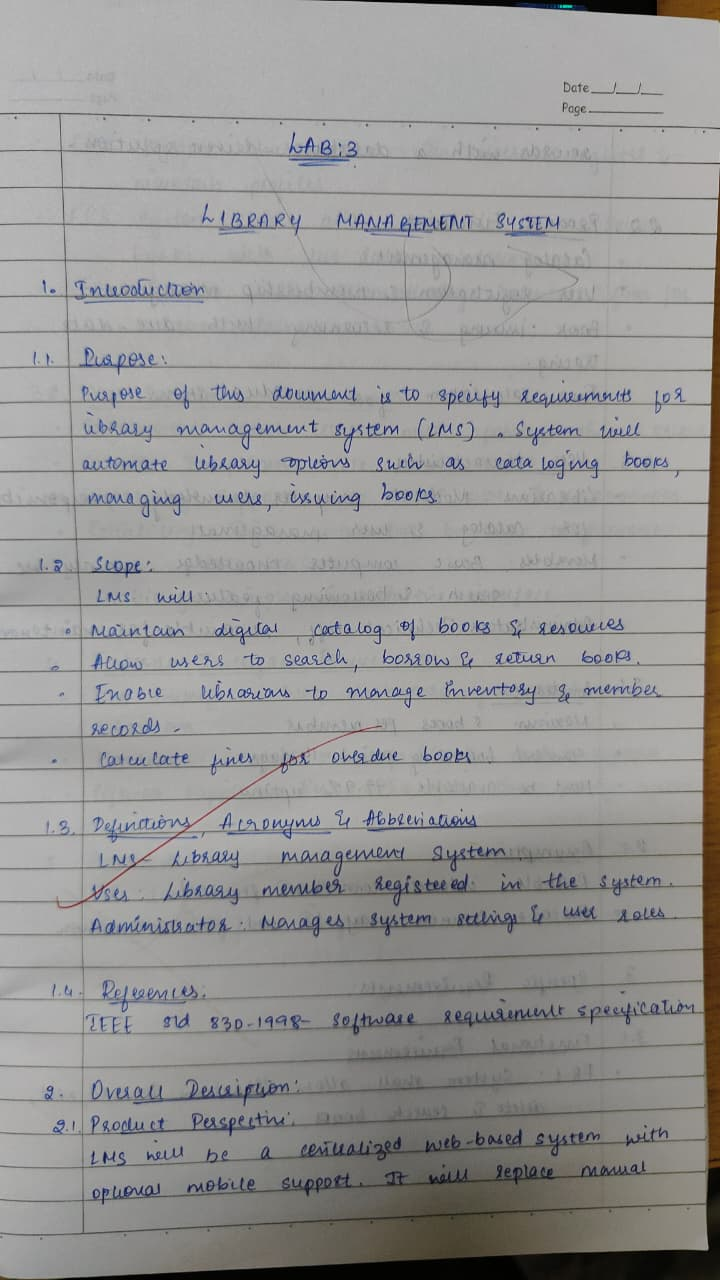 Date __/__/__
Page
LAB:3
LIBRARY MANAGEMENT SYSTEM
1. Introduction
1.1. Purpose:
Purpose of this document is to specify requirements for
library management system (LMS). System will
automate library options such as cataloging books,
managing users, issuing books.
1.2 Scope:
LMS will:
• Maintain digital catalog of books & resources
• Allow users to search, borrow & return books.
• Enable librarians to manage inventory & member
records.
• Calculate fines for overdue books
1.3. Definitions, Acronyms & Abbreviations
LMS - Library management System
User: Library member registered in the system.
Administrator: Manages system settings & user roles.
1.4. References:
IEEE std 830-1998- Software requirement specification
2. Overall Description:
2.1. Product Perspective:
LMS will be a centralized web-based system with
optional mobile support. It will replace manual